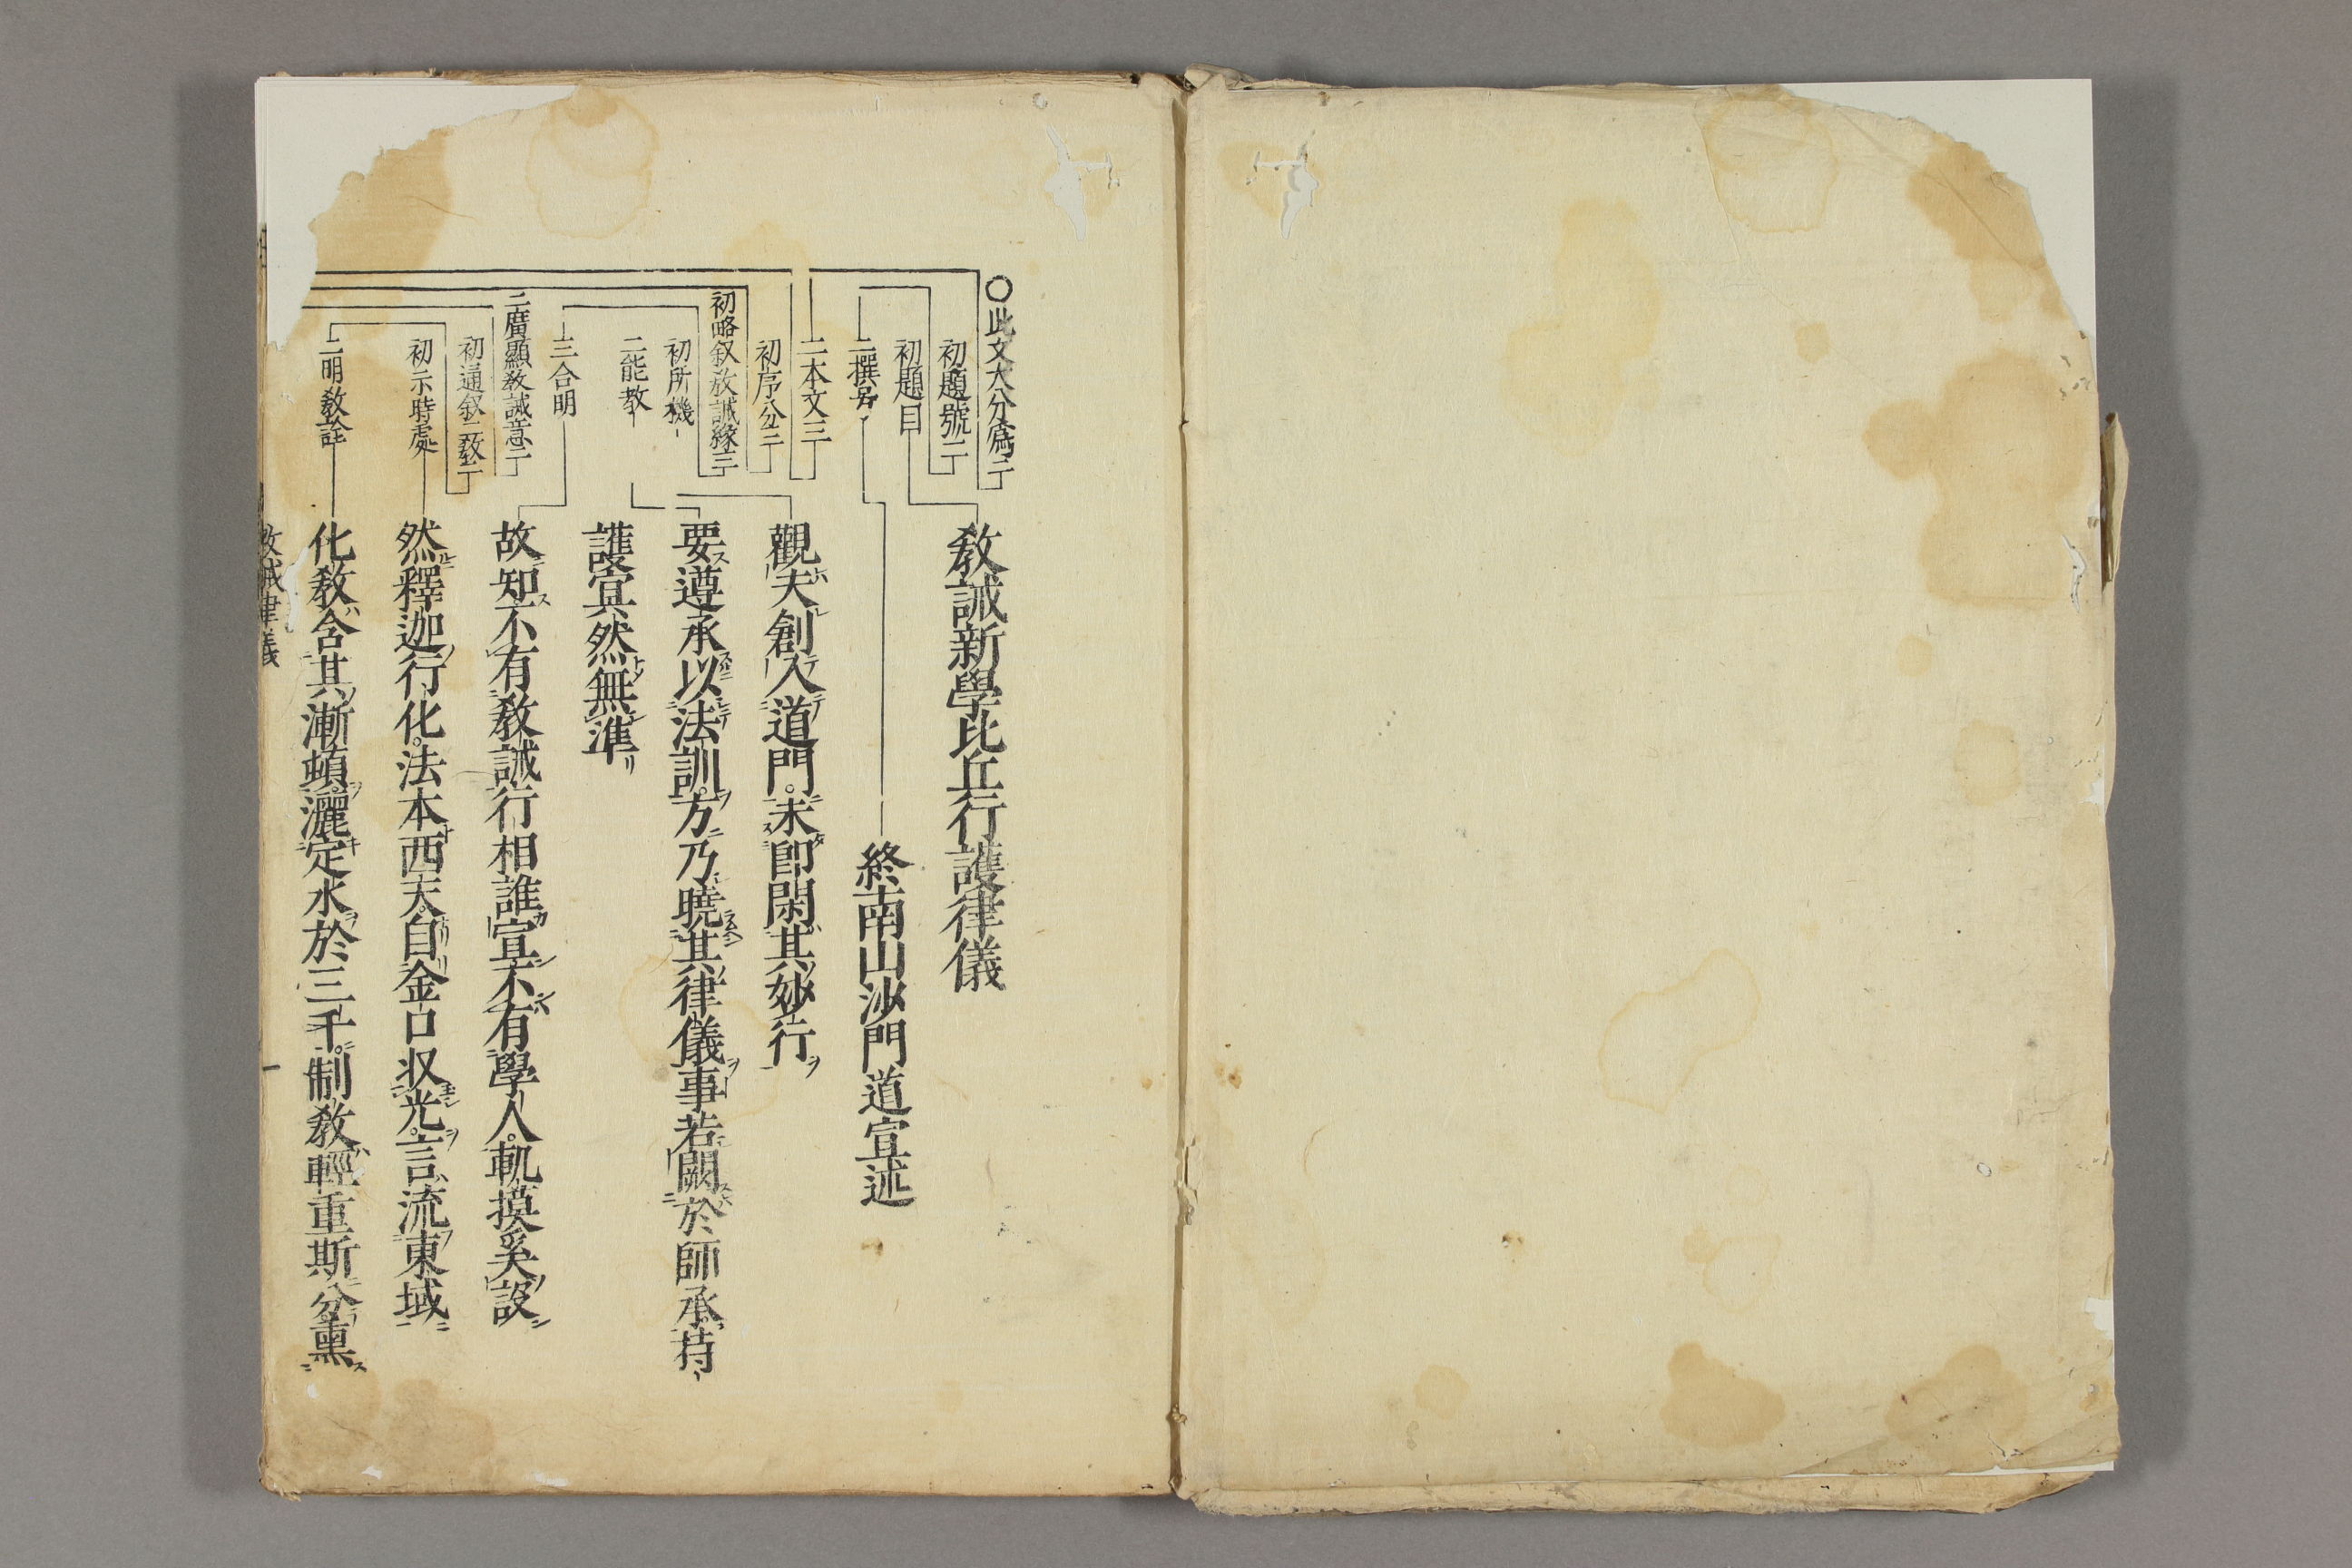 ○此文大分爲二
初題號二
初題目
二撰号
二本文三
初序分二
初略叙教誡緣三
初所機
二能教
三合明
二廣顯教誡意二
初通叙二教二
初示時處
二明教詮
教誡新學比丘行護律儀
終南山沙門道宣述
觀夫創入道門。未卽閑其妙行
要遵承以法訓。方乃曉其律儀事若闕於師承持
護冥然無準
故知不有教誡行相誰宣不有學人。軌摸奚設
然釋迦行化。法本西天。自金口収光。言流東域
化教含其漸頓。灑定水於三千。制教輕重斯分熏
教誡律儀
一